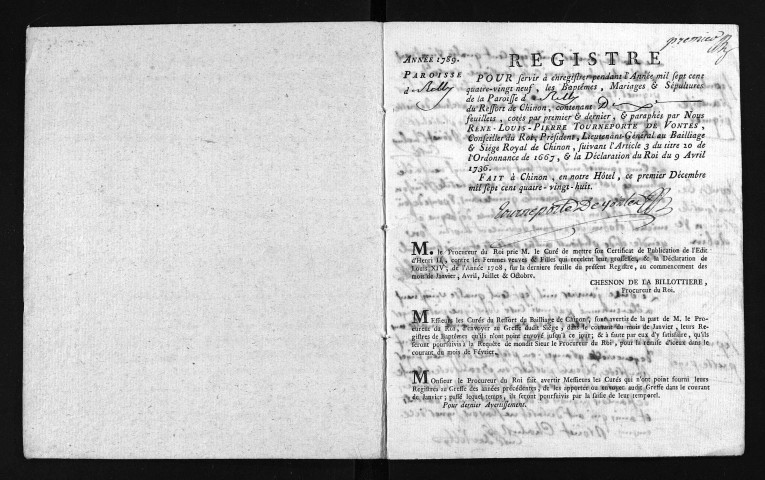 premier
ANNÉE 1789.
PAROISSE
d Relly
REGISTRE
POUR servir à enregistrer pendant l'Année mil sept cent
quatre-vingt neuf, les Baptêmes, Mariages & Sépultures
de la Paroisse d Relly
du Ressort de Chinon, contenant
feuillets, cotés par premier & dernier, & paraphés par Nous
RENÉ-LOUIS-PIERRE TOURNEPORTE DE VONTES,
Conseiller du Roi, Président, Lieutenant-Général au Bailliage
& Siége Royal de Chinon, suivant l'Article 3 du titre 20 de
l'Ordonnance de 1667, & la Déclaration du Roi du 9 Avril
1736.
FAIT à Chinon, en notre Hôtel, ce premier Décembre
mil sept cent quatre-vingt-huit.
Tourneporte De Vontes
M. le Procureur du Roi prie M. le Curé de mettre son Certificat de Publication de l'Edit
d'Henri II, contre les Femmes veuves & Filles qui recelent leur grossesses, & la Déclaration de
Louis XIV, de l'Année 1708, sur la derniere feuille du présent Registre, au commencement des
mois de Janvier, Avril, Juillet & Octobre.
CHESNON DE LA BILLOTTIERE,
Procureur du Roi.
MEssieurs les Curés du Ressort du Bailliage de Chinon, sont avertis de la part de M. le Pro-
cureur du Roi, d'envoyer au Greffe dudit Siége, dans le courant du mois de Janvier, leurs Re-
gistres de Baptêmes qu'ils n'ont point envoyé jusqu'à ce jour; & à faute par eux d'y satisfaire, qu'ils
seront poursuivis à la Requête de mondit Sieur le Procureur du Roi, pour la remise d'iceux dans le
courant du mois de Février.
Monsieur le Procureur du Roi fait avertir Messieurs les Curés qui n'ont point fourni leurs
Registres au Greffe des années précédentes, de les apporter ou envoyer audit Greffe dans le courant
de Janvier; passé lequel temps, ils seront poursuivis par la saisie de leur temporel.
Pour dernier Avertissement.